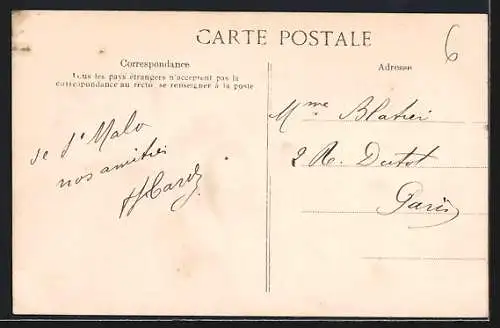 CARTE POSTALE
6
Correspondance
Tous les pays étrangers n'acceptent pas la
correspondance au recto, se renseigner à la poste
Adresse
de St Malo
nos amitiés
Mme Blatier
2 R. Dutot
Paris